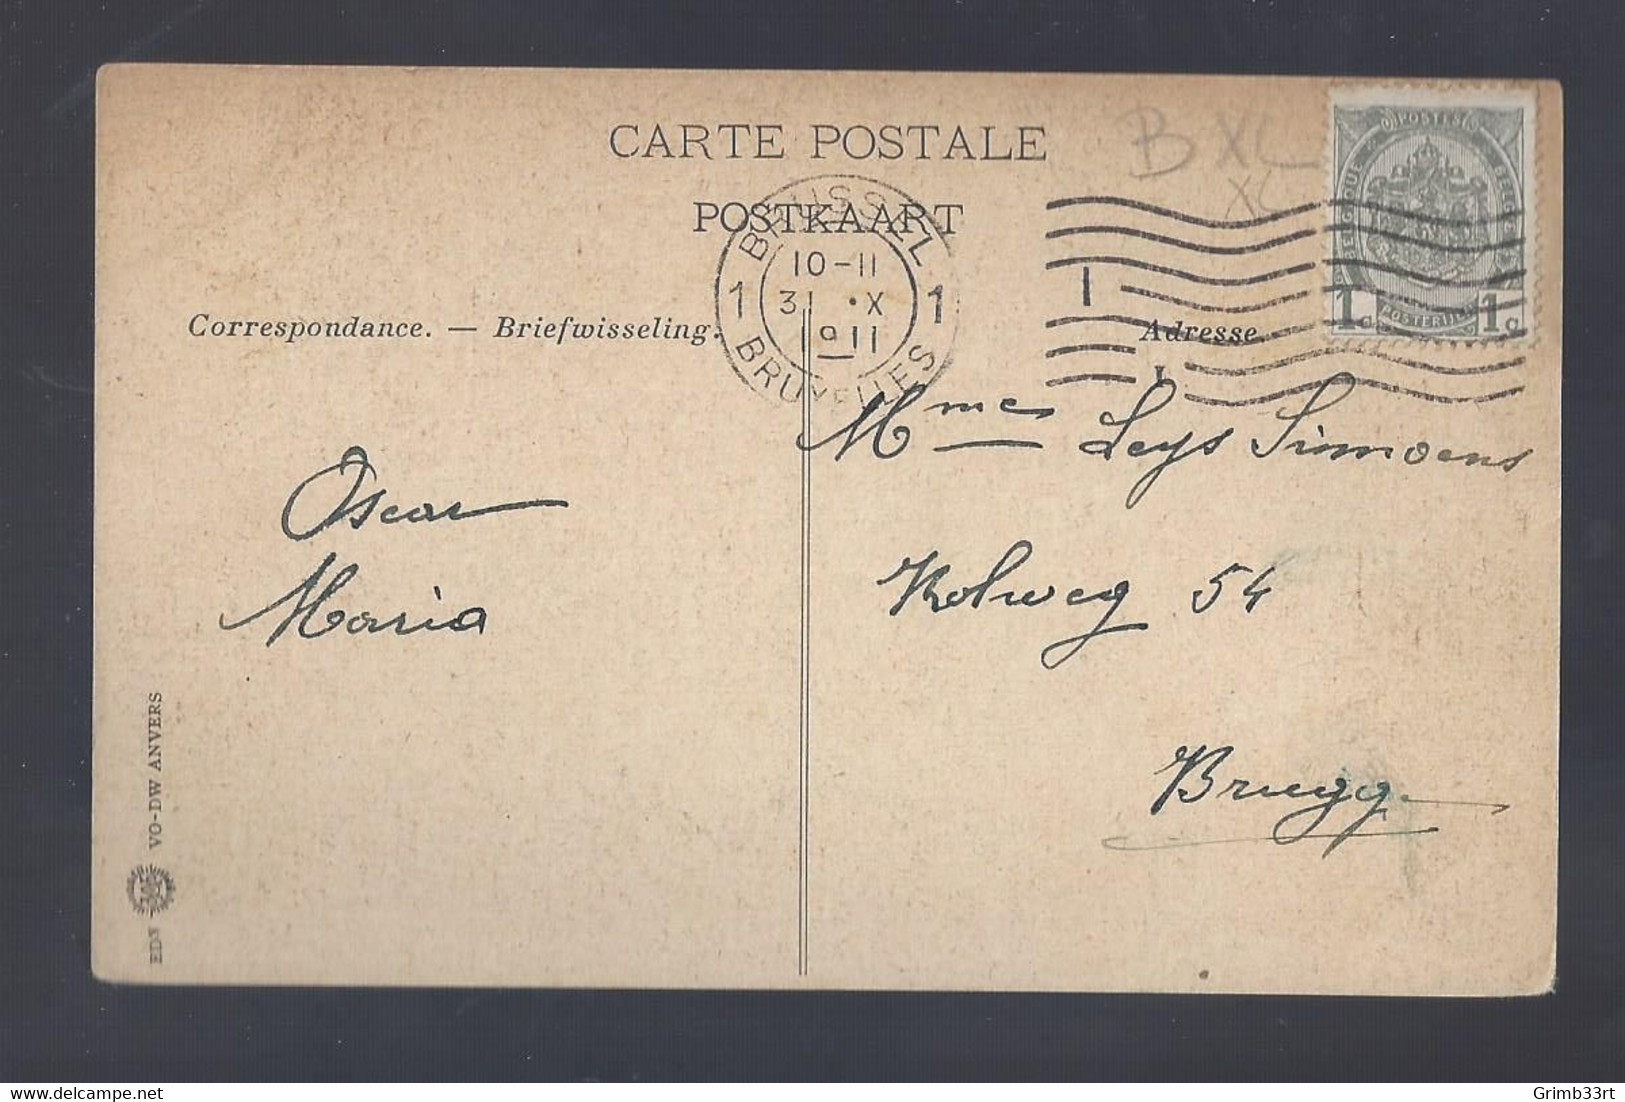 CARTE POSTALE
POSTKAART
B XL
XL
BRUSSEL
1 10-11 1
31 · X
1911
BRUXELLES
POSTES
BELGIQUE BELGIE
POSTERIJEN
1c 1c
1
Correspondance. — Briefwisseling.
Adresse.
Mme Leys Simoens
Oscar
Maria
Kolweg 54
Brugge
EDN VO-DW ANVERS
delcampe.net
Grimb33rt